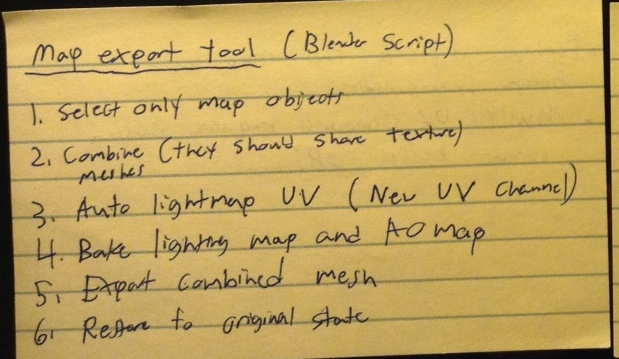 Map export tool (Blender Script)
1. Select only map objects
2. Combine (they should share texture)
meshes
3. Auto lightmap UV (New UV Channel)
4. Bake lighting map and AO map
5. Export combined mesh
6. Restore to original state